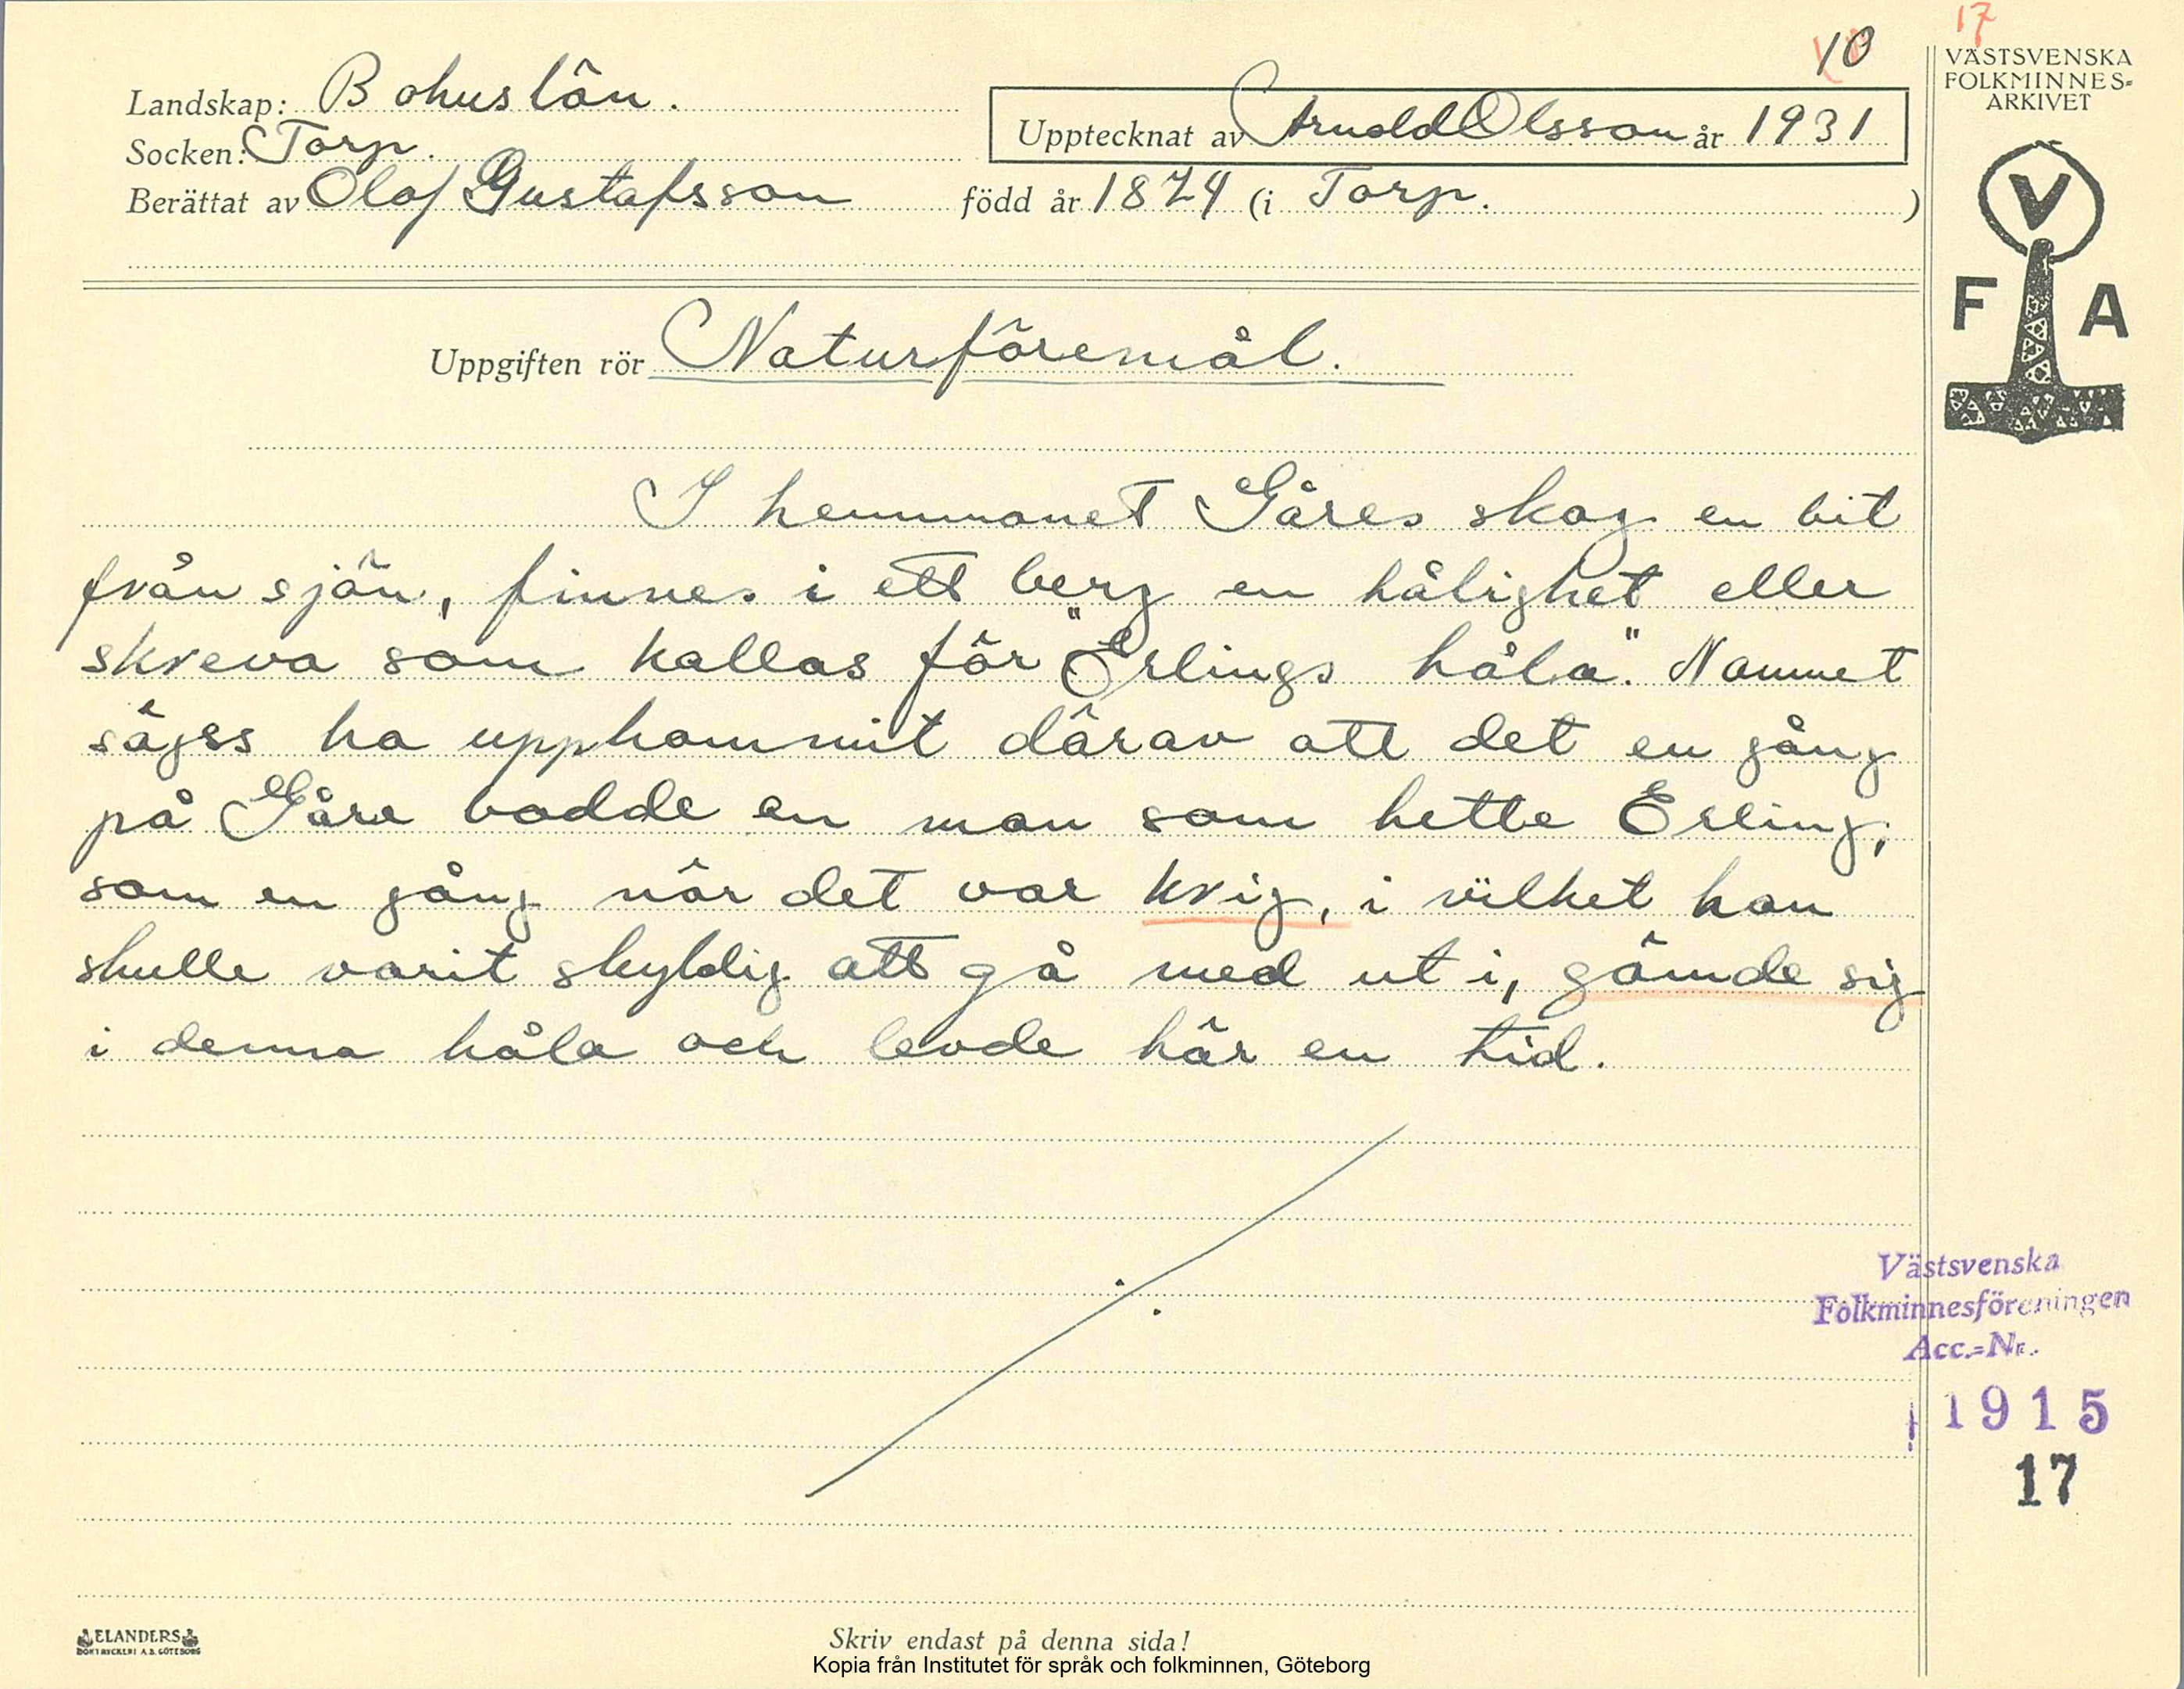 17
10
VÄSTSVENSKA
FOLKMINNES-
ARKIVET
Landskap: Bohuslän.
Upptecknat av Arnold Olsson år 1931
Socken: Torp.
Berättat av Olof Gustafsson född år 1874 (i Torp. )
V
F A
Uppgiften rör Naturföremål.
I hemmanet Gåres skog en bit
från sjön, finnes i ett berg en hålighet eller
skreva som kallas för "Erlings håla". Namnet
säges ha uppkommit därav att det en gång
på Gåre bodde en man som hette Erling,
som en gång när det var krig, i vilket han
skulle varit skyldig att gå med ut i, gömde sig
i denna håla och levde här en tid.
Västsvenska
Folkminnesföreningen
Acc.-Nr.
1915
17
ELANDERS
BOKTRYCKERI A.B. GÖTEBORG
Skriv endast på denna sida!
Kopia från Institutet för språk och folkminnen, Göteborg